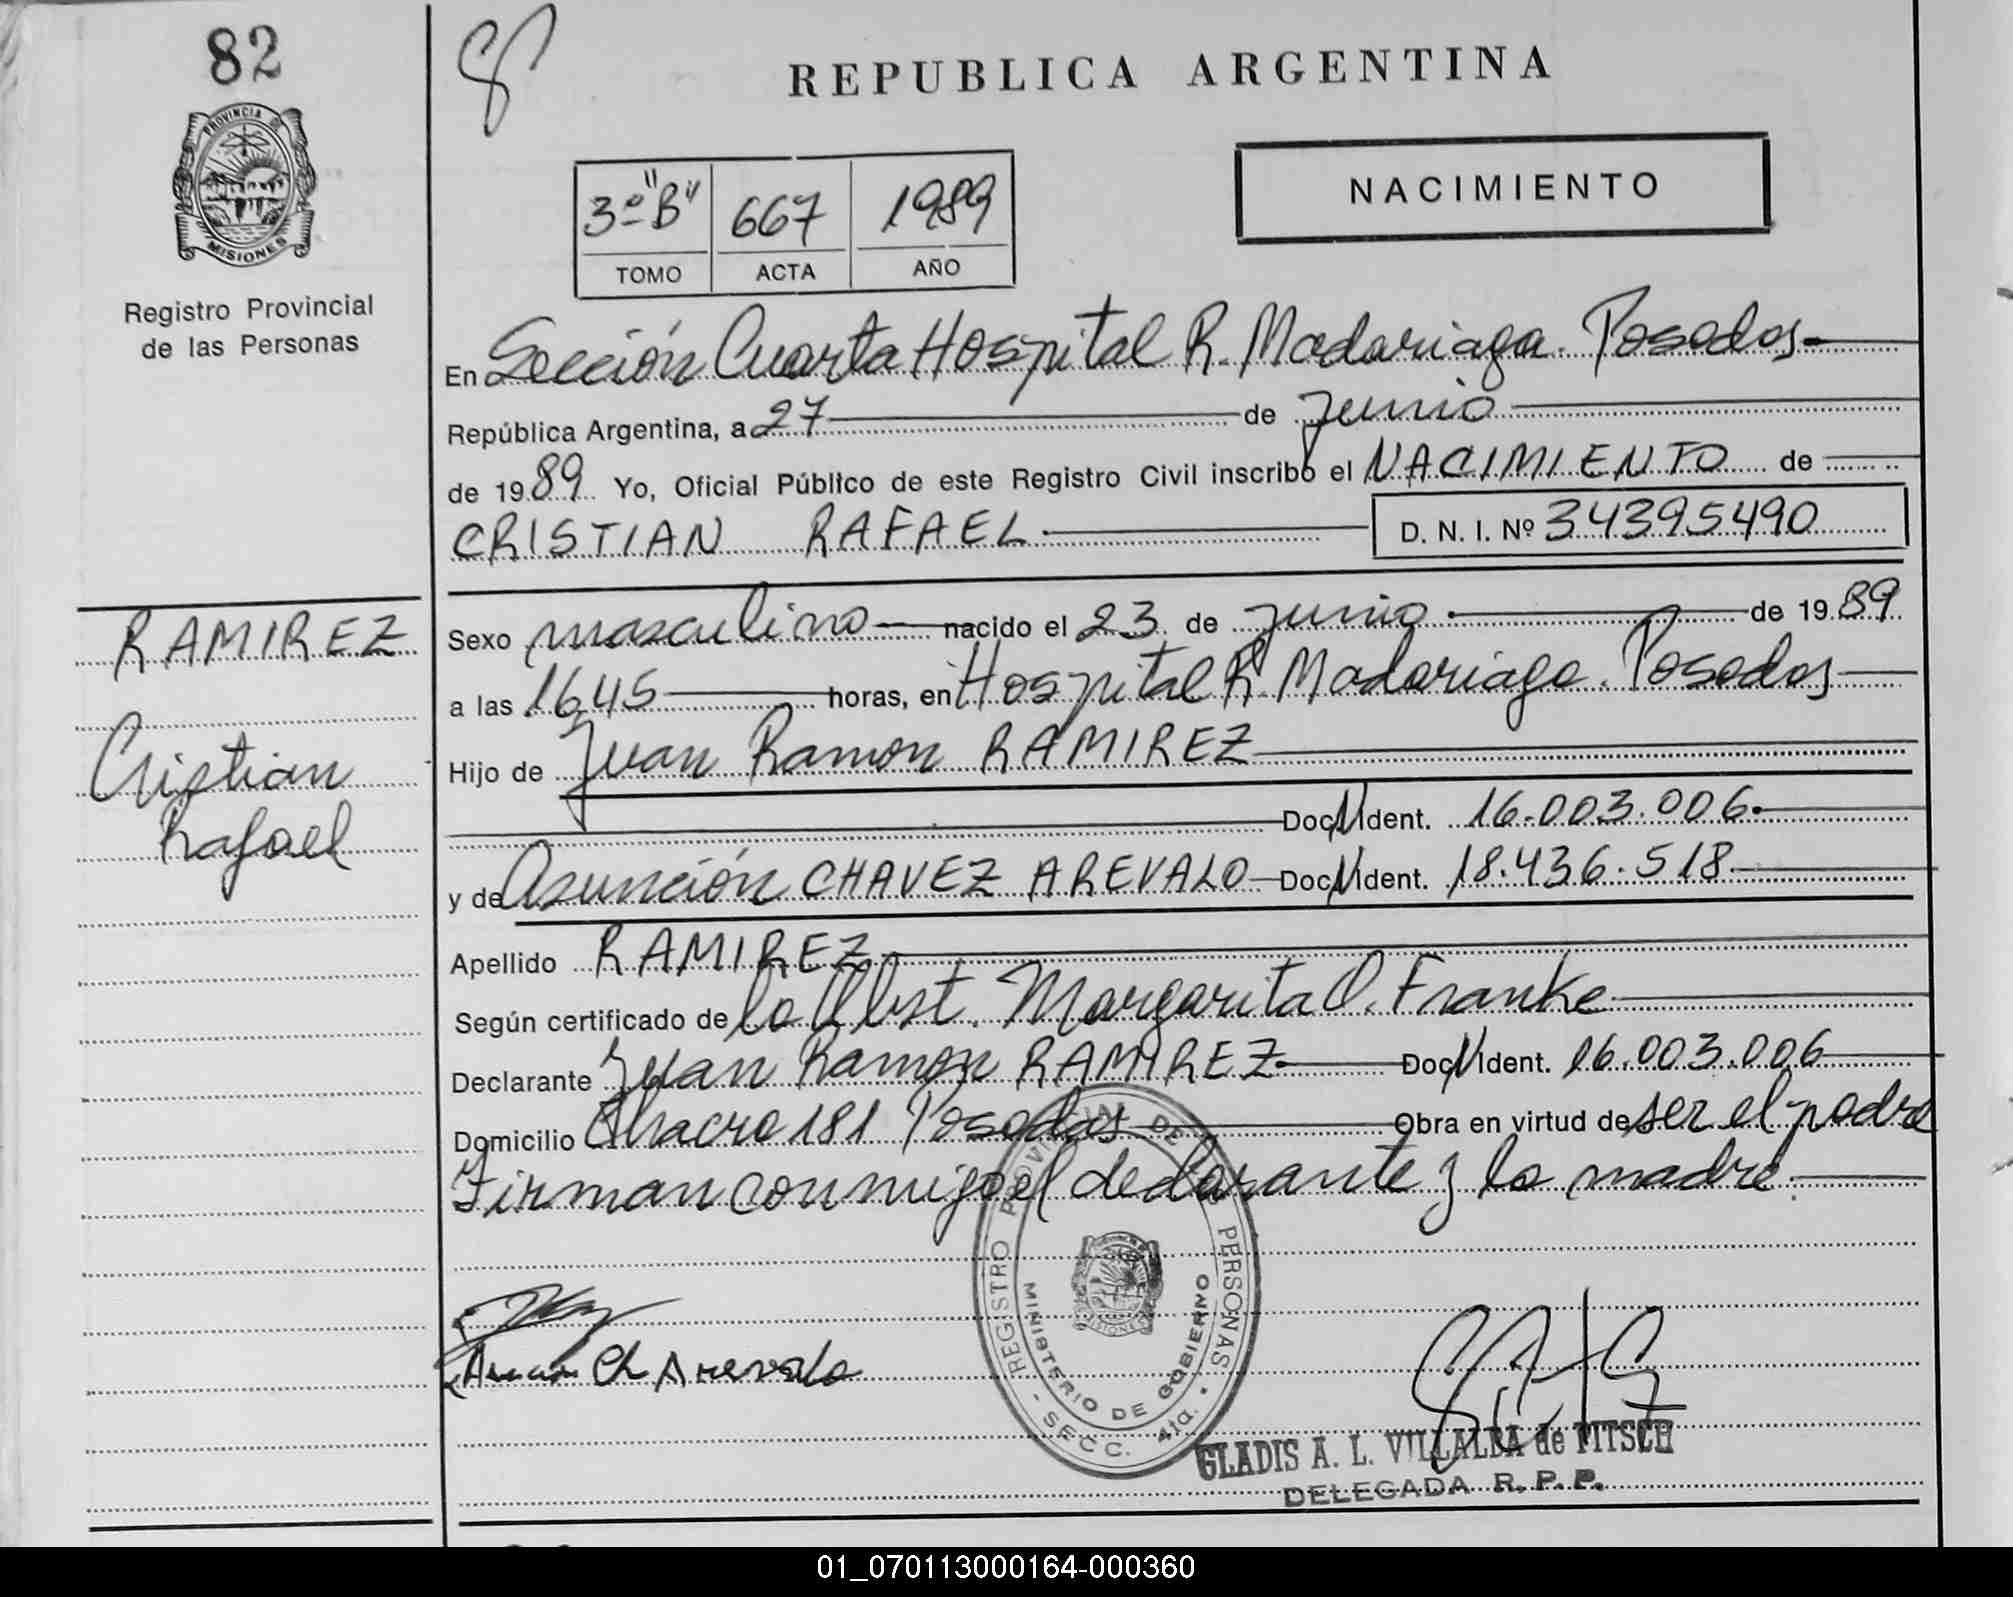 82
PROVINCIA DE
MISIONES
Registro Provincial
de las Personas
REPUBLICA ARGENTINA
NACIMIENTO
3º "B" 667 1989
TOMO ACTA AÑO
En Sección Cuarta Hospital R. Madariaga. Posadas
República Argentina, a 27 de Junio
de 1989 Yo, Oficial Público de este Registro Civil inscribo el NACIMIENTO de
CRISTIAN RAFAEL D. N. I. Nº 34395490
RAMIREZ
Cristian
Rafael
Sexo masculino nacido el 23 de Junio de 1989
a las 16,45 horas, en Hospital R. Madariaga. Posadas
Hijo de Juan Ramon RAMIREZ
Doc. N. Ident. 16.003.006
y de Asunción CHAVEZ AREVALO Doc. N. Ident. 18.436.518
Apellido RAMIREZ
Según certificado de la Obst. Margarita O. Franke
Declarante Juan Ramon RAMIREZ Doc. N. Ident. 16.003.006
Domicilio Chacra 181 Posadas Obra en virtud de ser el padre
Firman conmigo el declarante y la madre.
REGISTRO PROVINCIAL DE LAS PERSONAS
MINISTERIO DE GOBIERNO
SECC. 4ta.
Asunción Ch Arevalo
GLADIS A. L. VILLALBA de PITSCH
DELEGADA R. P. P.
01_070113000164-000360